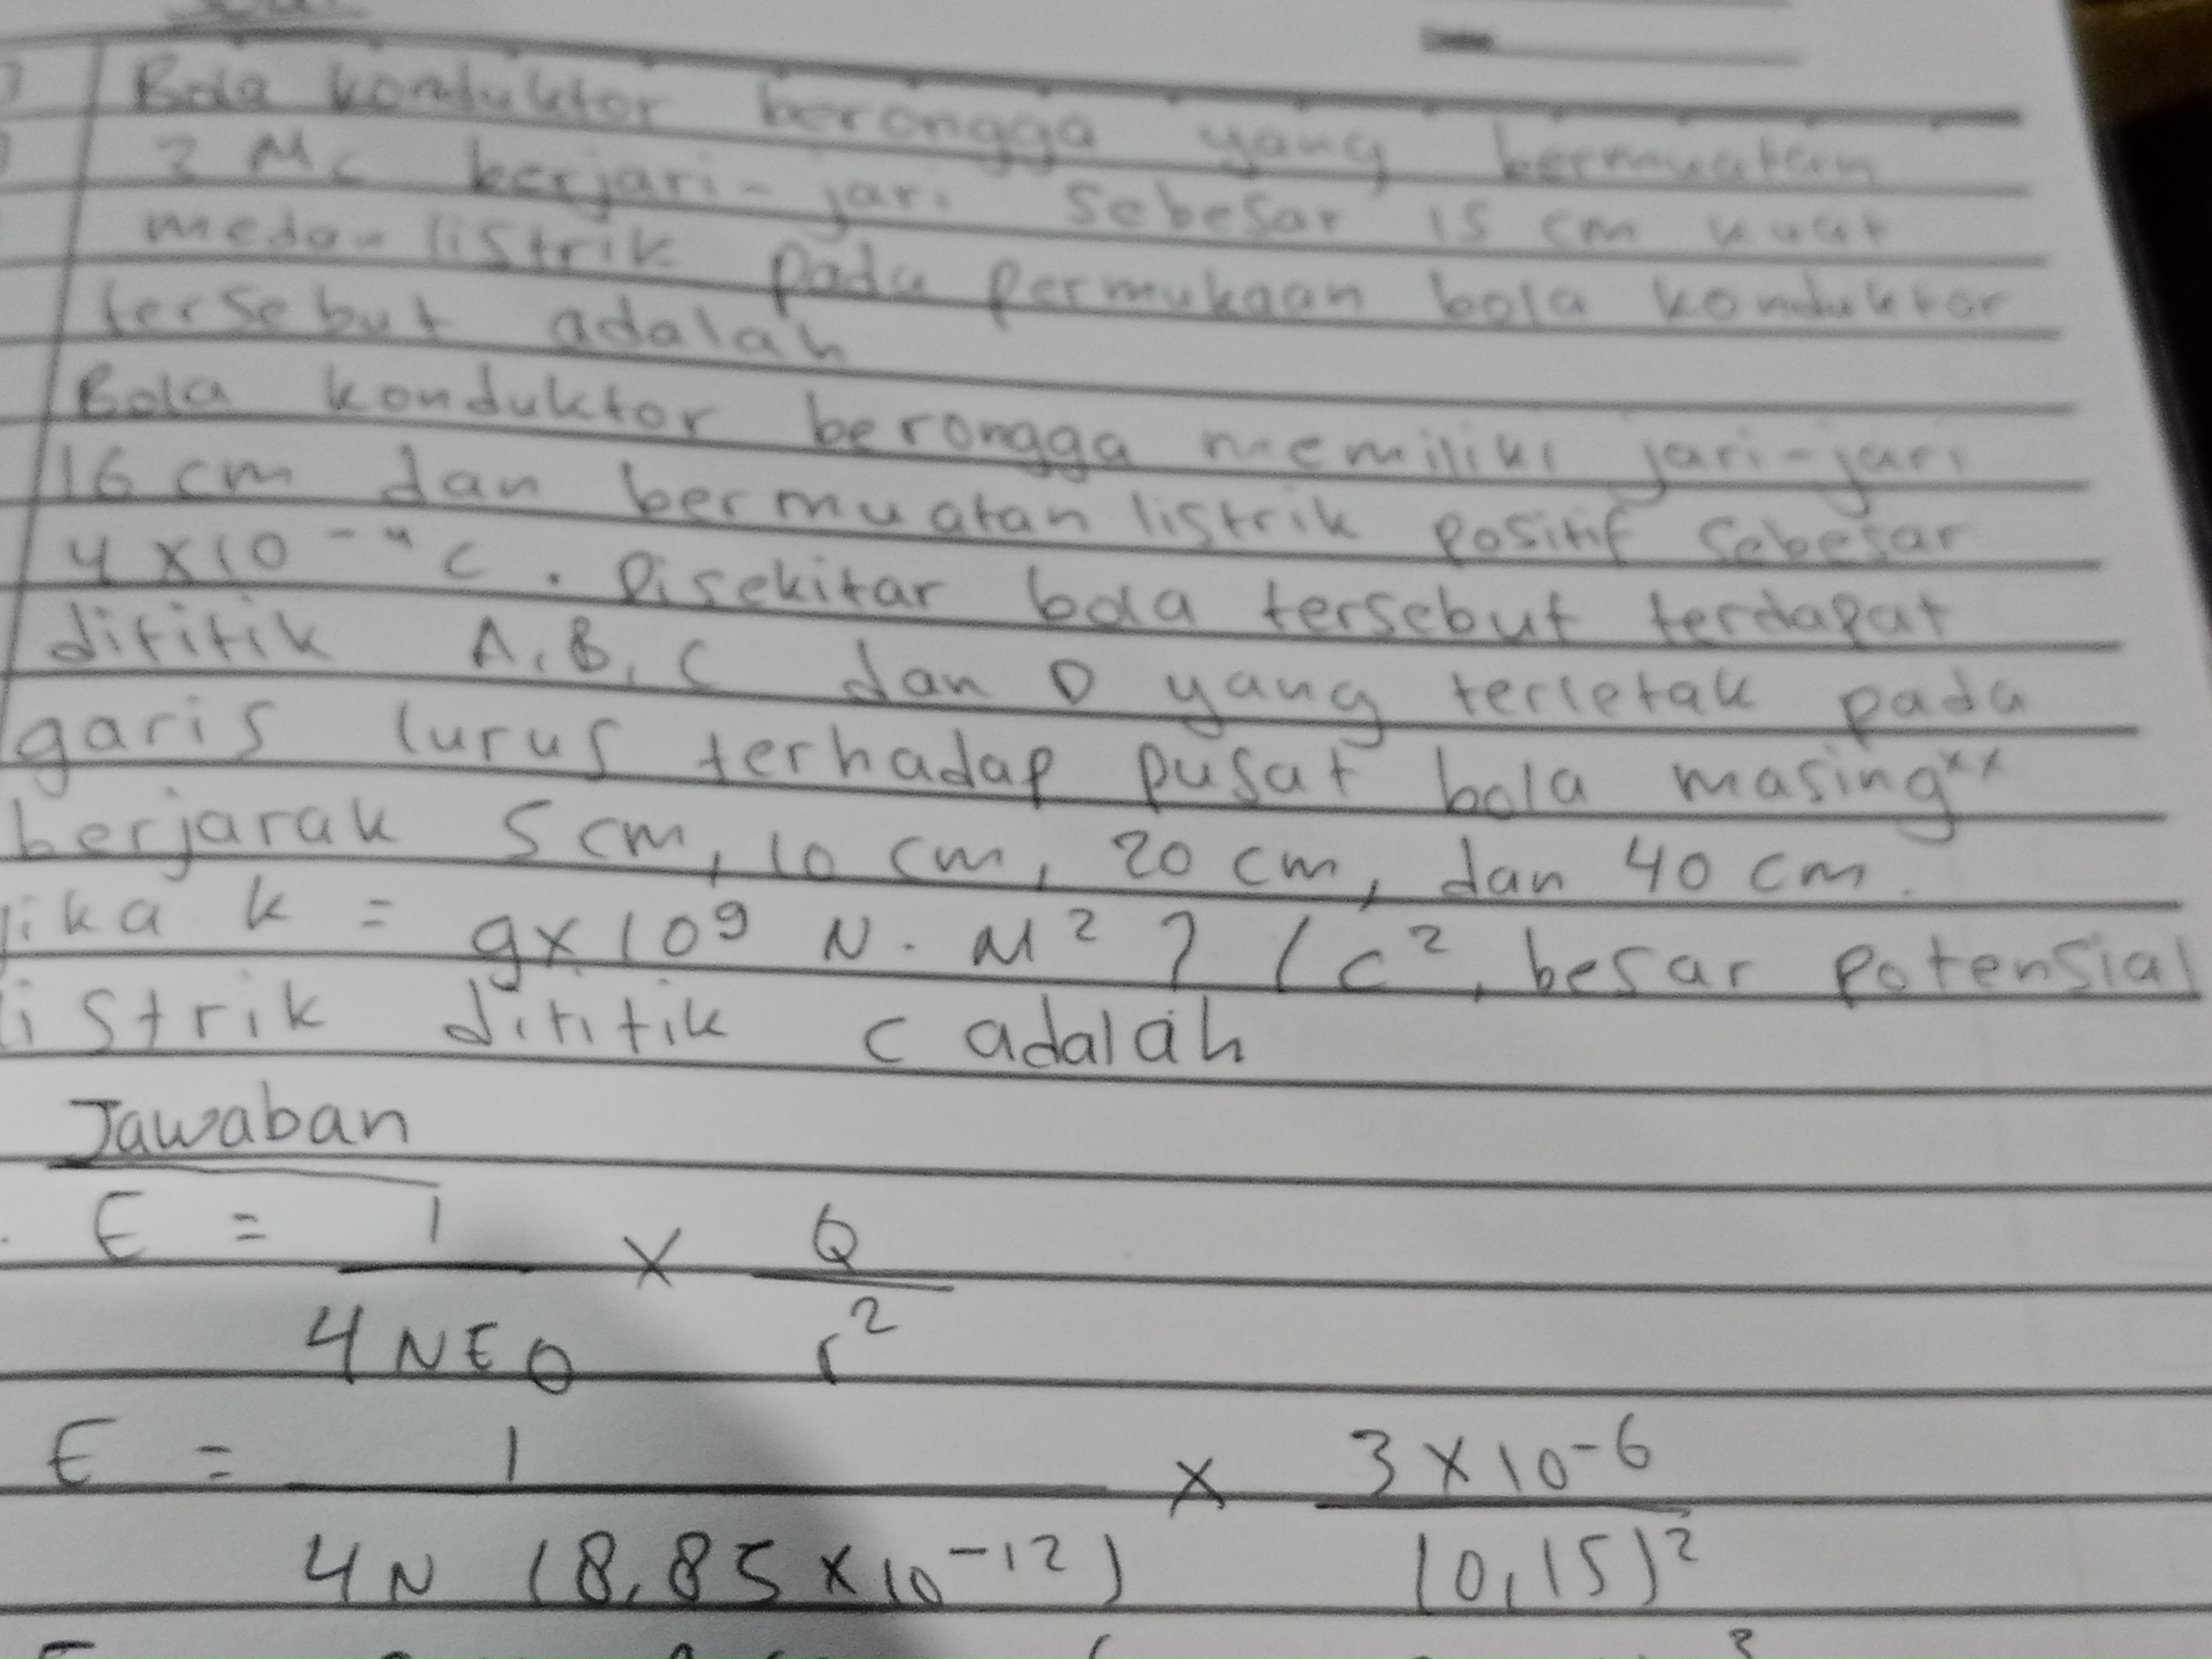 Bola konduktor berongga yang bermuatan
3 Mc berjari-jari sebesar 15 cm kuat
medan listrik pada permukaan bola konduktor
tersebut adalah
Bola konduktor berongga memiliki jari-jari
16 cm dan bermuatan listrik positif sebesar
4 x 10⁻⁴ C. Disekitar bola tersebut terdapat
dititik A, B, C dan D yang terletak pada
garis lurus terhadap pusat bola masing××
berjarak 5 cm, 10 cm, 20 cm, dan 40 cm.
jika k = 9x10⁹ N. M² ? / C², besar potensial
listrik dititik C adalah
Jawaban
E = 1 / 4NEO x Q / r²
E = 1 / 4N (8,85 x 10⁻¹²) x 3 x 10⁻⁶ / (0,15)²